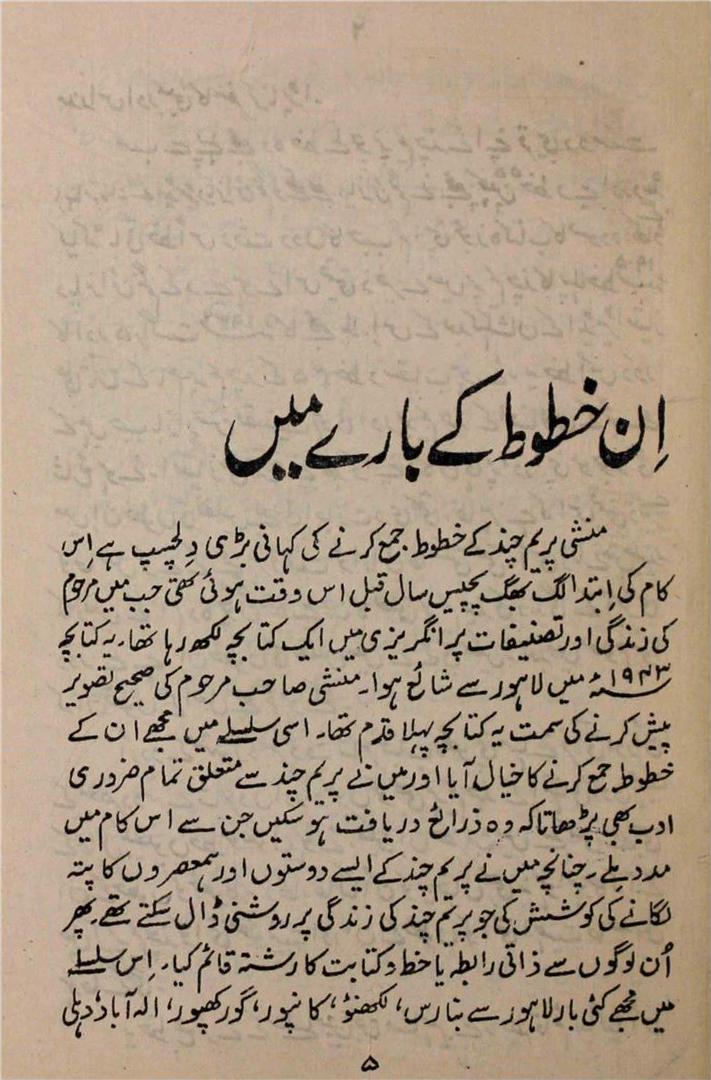 اِن خطوط کے بارے میں
منشی پریم چند کے خطوط جمع کرنے کی کہانی بڑی دلچسپ ہے اِس
کام کی اِبتدا لگ بھگ پچیس سال قبل اس وقت ہوئی تھی جب میں مرحوم
کی زندگی اور تصنیفات پر انگریزی میں ایک کتابچہ لکھ رہا تھا۔ یہ کتابچہ
۱۹۴۳ء میں لاہور سے شائع ہوا۔ منشی صاحب مرحوم کی صحیح تصویر
پیش کرنے کی سمت یہ کتابچہ پہلا قدم تھا۔ اسی سلسلے میں مجھے ان کے
خطوط جمع کرنے کا خیال آیا اور میں نے پریم چند سے متعلق تمام ضروری
ادب بھی پڑھا تاکہ وہ ذرائع دریافت ہو سکیں جن سے اس کام میں
مدد ملے۔ چنانچہ میں نے پریم چند کے ایسے دوستوں اور ہمعصروں کا پتہ
لگانے کی کوشش کی جو پریم چند کی زندگی پر روشنی ڈال سکتے تھے۔ پھر
اُن لوگوں سے ذاتی رابطہ یا خط و کتابت کا رشتہ قائم کیا۔ اِس سلسلے
میں مجھے کئی بار لاہور سے بنارس، لکھنؤ، کانپور، گورکھپور، الہ آباد، دہلی
۵